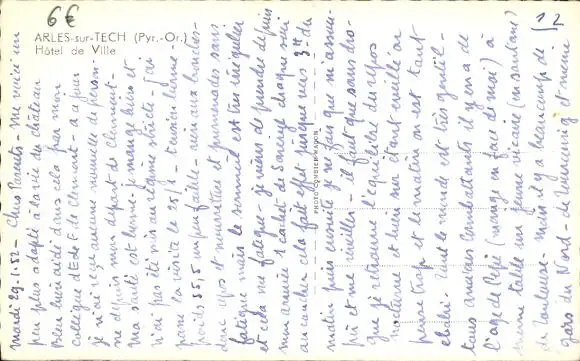 6 €
12
ARLES-sur-TECH (Pyr.-Or.)
Hôtel de Ville
PHOTO COMBIER MACON
mardi 29-1-52 - Chers Parents - Me voici un
peu plus adapté à la vie du château
bien aidé dans cela par mon
collègue d'EdF de Clermont - à ce jour
je n'ai reçu aucune nouvelle de person-
ne depuis mon départ de Clermont -
ma santé est bonne - je mange bien et
n'ai pas été mis au régime stricte - j'ai
passé la visite le 25/1 - tension bonne -
poids 55,5 un peu faible - rien aux bronches -
donc repos et et promenades sans
fatigue mais le sommeil est très irrégulier
et cela me fatigue - je viens de prendre depuis
mon arrivée 1 cachet de chaque soir
au coucher cela fait effet jusque vers 3h du
matin puis ensuite je ne fais que m'assou-
pir et me réveiller - il faut que sans dro-
gue je retrouve l'équilibre du repos
nocturne et bien sûr étant éveillé on
pense trop et le matin on est tout
Tout le monde est très gentil -
tous anciens combattants il y en a de
l'age de Pépé (en face de moi) à
même table un jeune vicaire
de Toulouse - mais il y a beaucoup de
gars du Nord - de et même